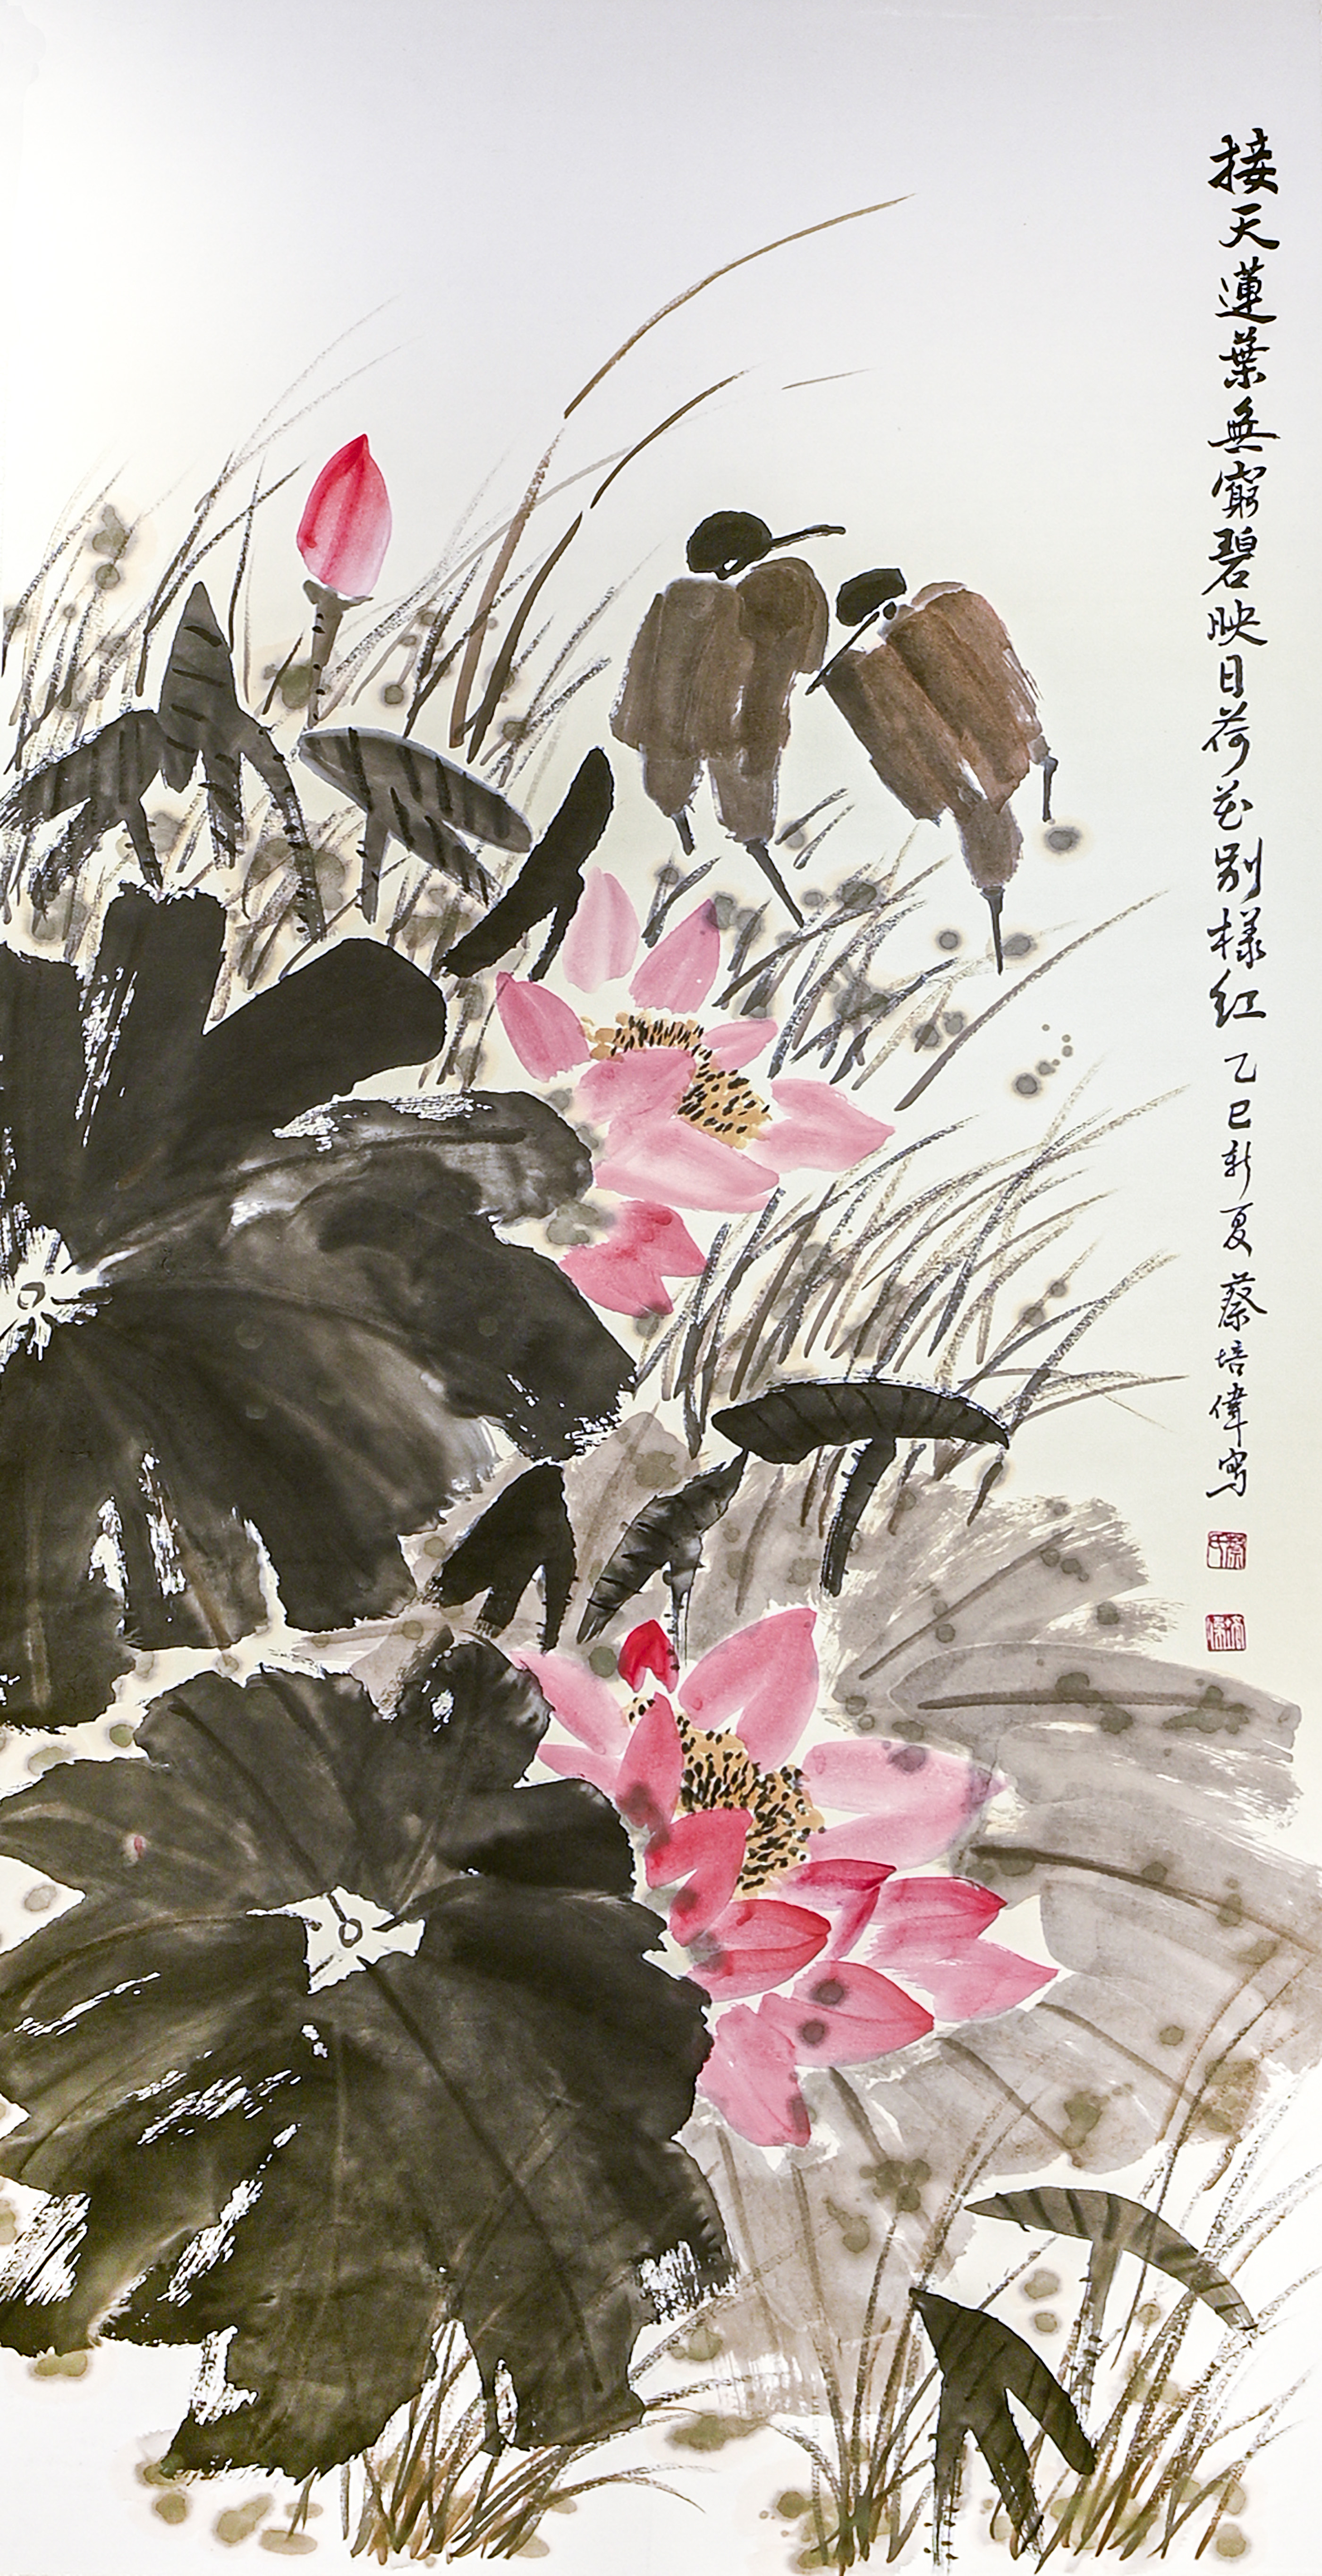 接天蓮葉無窮碧映日荷花別樣红乙巳新夏蔡培偉寫